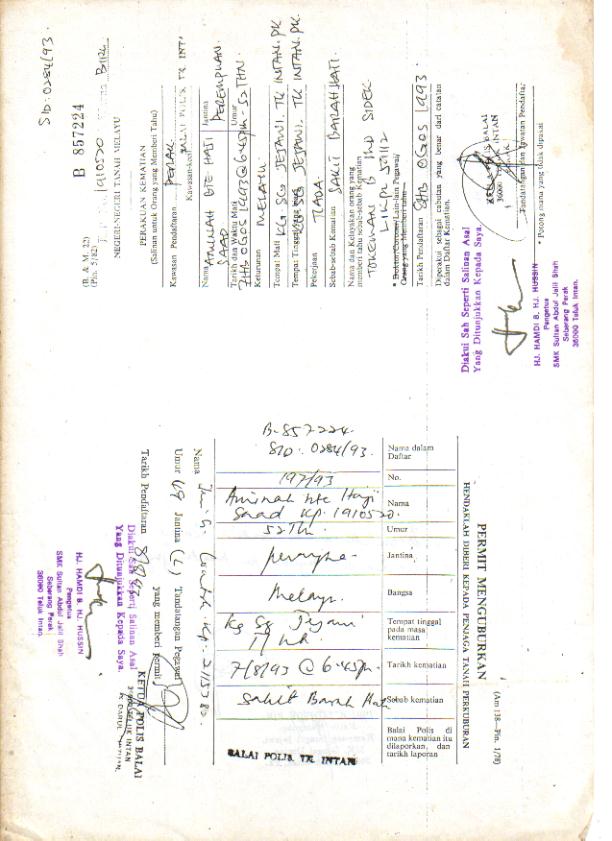 SID: 0284/93.
(R. & M. 22)
(Pin. 5/82)
B 857224
1910520
NEGERI-NEGERI TANAH MELAYU
PERAKUAN KEMATIAN
(Salinan untuk Orang yang Memberi Tahu)
Kawasan Pendaftaran PERAK
Kawasan-kecil BALAI POLIS TK INT
Nama AMINAH BTE HAJI SAAD
Jantina PEREMPUAN
Tarikh dan Waktu Mati 7HB OGOS 1993 @ 6.45PM
Umur 52THN
Keturunan MELAYU
Tempat Mati KG SG JEJAWI. TK INTAN. PK
Tempat Tinggal KG SG JEJAWI. TK INTAN. PK.
Pekerjaan TIADA
Sebab-sebab Kematian SAKIT BARAH HATI.
Nama dan Kelayakan orang yang
memberi tahu sebab-sebab Kematian
B MD SIDEK
* Doktor/Coroner/Lain-lain Pegawai/
Orang yang Memberi tahu
Tarikh Pendaftaran 8HB OGOS 1993
Diperakui sebagai cabutan yang benar dari catatan
dalam Daftar Kematian.
KETUA POLIS BALAI
36000 TELUK INTAN
Tandatangan dan Jawatan Pendaftar
* Potong mana yang tidak dipakai
Diakui Sah Seperti Salinan Asal
Yang Ditunjukkan Kepada Saya.
HJ. HAMDI B. HJ. HUSSIN
Pengetua
SMK Sultan Abdul Jalil Shah
Seberang Perak
36000 Teluk Intan.
(Am 118—Pin. 1/78)
PERMIT MENGUBURKAN
HENDAKLAH DIBERI KEPADA PENJAGA TANAH PERKUBURAN
Nama dalam Daftar B-857224. SID: 0284/93.
No. 197/93
Nama Aminah bte Haji Saad Kp. 1910520.
Umur 52Th.
Jantina
Bangsa Melayu.
Tempat tinggal pada masa kematian Kg Sg Jejawi
Tarikh kematian 7/8/93 @ 6.45pm.
Sebab kematian Sakit Barah Hati
Balai Polis di masa kematian itu dilaporkan, dan tarikh laporan BALAI POLIS. TK. INTAN
Nama
Umur 49 Jantina (L) Tandatangan Pegawai
yang memberi permit
Tarikh Pendaftaran 8/8/93
KETUA POLIS BALAI
36000 TELUK INTAN
Diakui Sah Seperti Salinan Asal
Yang Ditunjukkan Kepada Saya.
HJ. HAMDI B. HJ. HUSSIN
Pengetua
SMK Sultan Abdul Jalil Shah
Seberang Perak
36000 Teluk Intan.